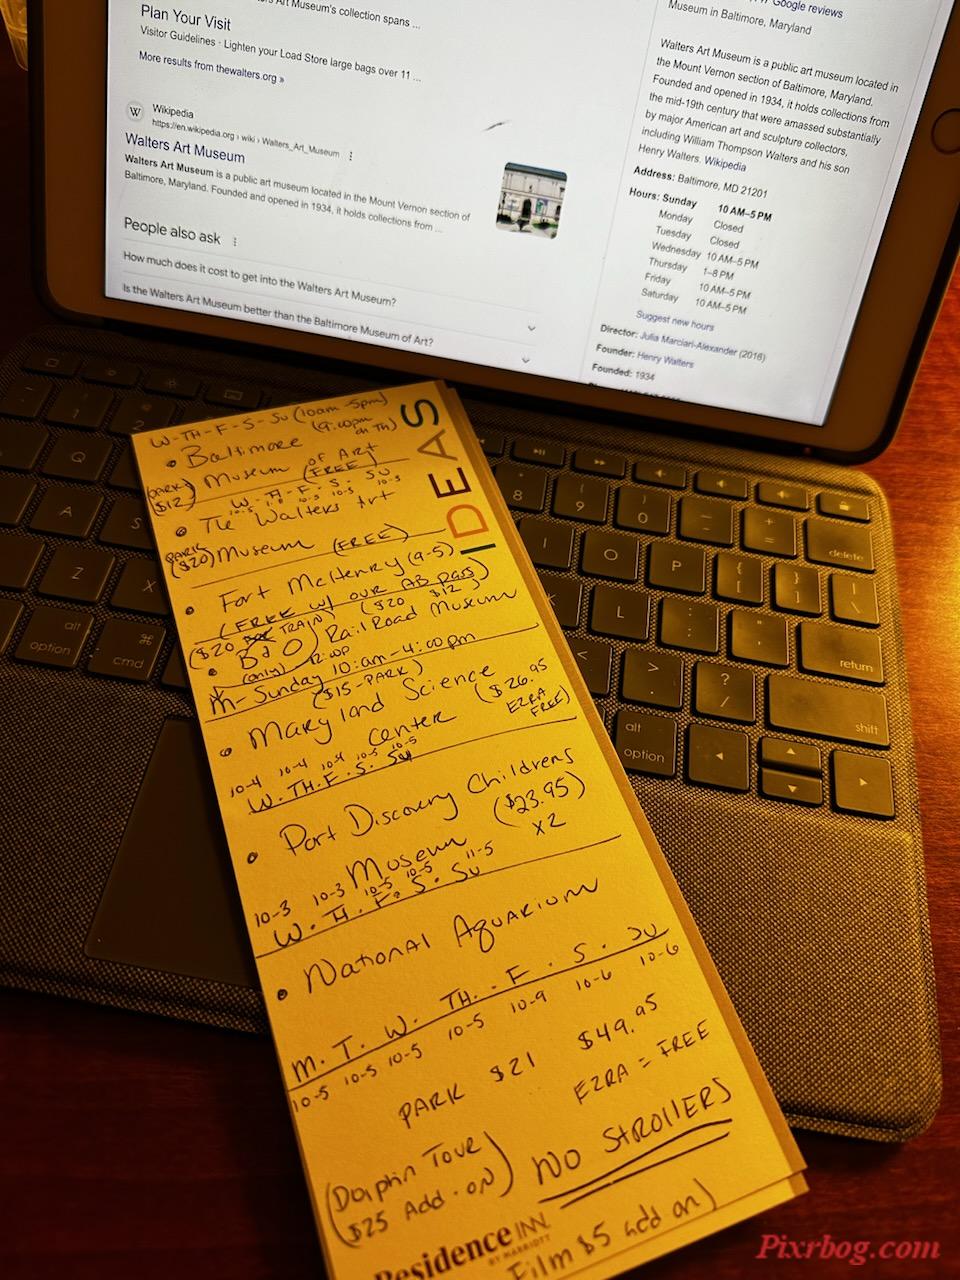 Art Museum's collection spans ...
Plan Your Visit
Visitor Guidelines · Lighten your Load Store large bags over 11 ...
More results from thewalters.org »
W
Wikipedia
https://en.wikipedia.org › wiki › Walters_Art_Museum
Walters Art Museum
Walters Art Museum is a public art museum located in the Mount Vernon section of
Baltimore, Maryland. Founded and opened in 1934, it holds collections from ...
People also ask
How much does it cost to get into the Walters Art Museum?
Is the Walters Art Museum better than the Baltimore Museum of Art?
Google reviews
Museum in Baltimore, Maryland
Walters Art Museum is a public art museum located in
the Mount Vernon section of Baltimore, Maryland.
Founded and opened in 1934, it holds collections from
the mid-19th century that were amassed substantially
by major American art and sculpture collectors,
including William Thompson Walters and his son
Henry Walters. Wikipedia
Address: Baltimore, MD 21201
Hours: Sunday 10 AM–5 PM
Monday Closed
Tuesday Closed
Wednesday 10 AM–5 PM
Thursday 1–8 PM
Friday 10 AM–5 PM
Saturday 10 AM–5 PM
Suggest new hours
Director: Julia Marciari-Alexander (2016)
Founder: Henry Walters
Founded: 1934
IDEAS
W-TH-F-S-SU (10am-5pm)
(9:00pm on TH)
• Baltimore
Museum of Art
(PARK $12) (FREE)
W. TH. F. S. SU
10-5 1-8 10-5 10-5 10-5
• The Walters Art
(PARK $20) Museum (FREE)
• Fort McHenry (9-5)
(FREE w/ OUR AB PASS)
($20 TRAIN) ($20 $12)
• B & O Rail Road Museum
(only) 12:00p
M-Sunday 10:am-4:00pm
($15-PARK)
• Maryland Science
Center ($26.95
EZRA FREE)
10-4 10-4 10-4 10-5 10-5
W. TH. F. S. SU
• Port Discovery Childrens
Museum ($23.95)
X2
10-3 10-3 10-5 10-5 11-5
W. TH. F. S. SU
• National Aquarium
M. T. W. TH. F. S. SU
10-5 10-5 10-5 10-5 10-9 10-6 10-6
PARK $21 $49.95
EZRA = FREE
(Dolphin Tour
$25 Add-on) NO STROLLERS
Film $5 add on)
Residence INN.
BY MARRIOTT
Q
A
S
Z
X
alt
option
cmd
8
9
0
-
+
=
delete
I
O
P
{
[
}
]
|
\
L
:
;
"
'
return
<
>
.
?
/
shift
alt
option
Pixrbog.com